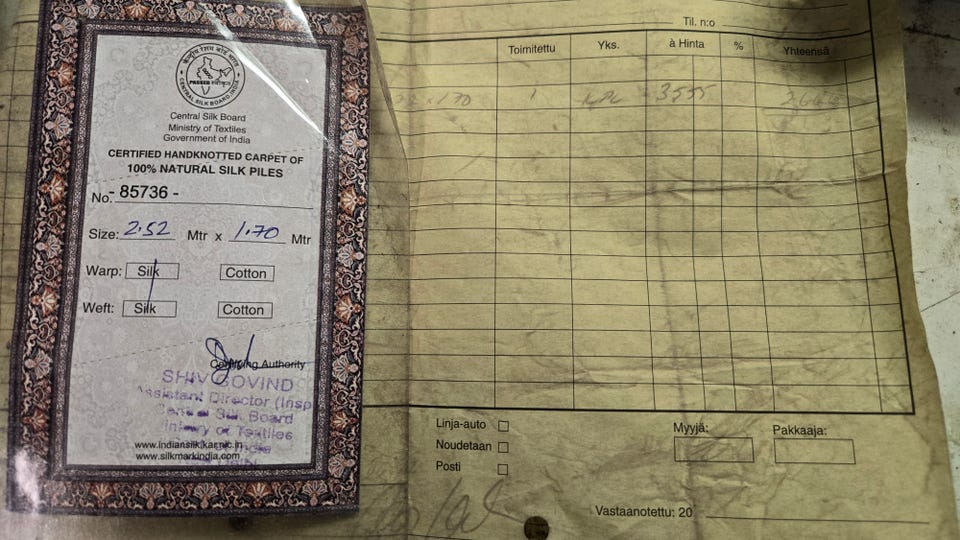 केन्द्रीय रेशम बोर्ड
CENTRAL SILK BOARD, INDIA
Central Silk Board
Ministry of Textiles
Government of India
CERTIFIED HANDKNOTTED CARPET OF
100% NATURAL SILK PILES
No. - 85736 -
Size: 2.52 Mtr x 1.70 Mtr
Warp: Silk Cotton
Weft: Silk Cotton
Certifying Authority
SHIV GOVIND
Assistant Director (Insp
Central Silk Board
of Textiles
www.silkmarkindia.com
Til. n:o
Toimitettu Yks. à Hinta % Yhteensä
x 170 1 KPL
Linja-auto
Noudetaan
Posti
Myyjä: Pakkaaja:
Vastaanotettu: 20